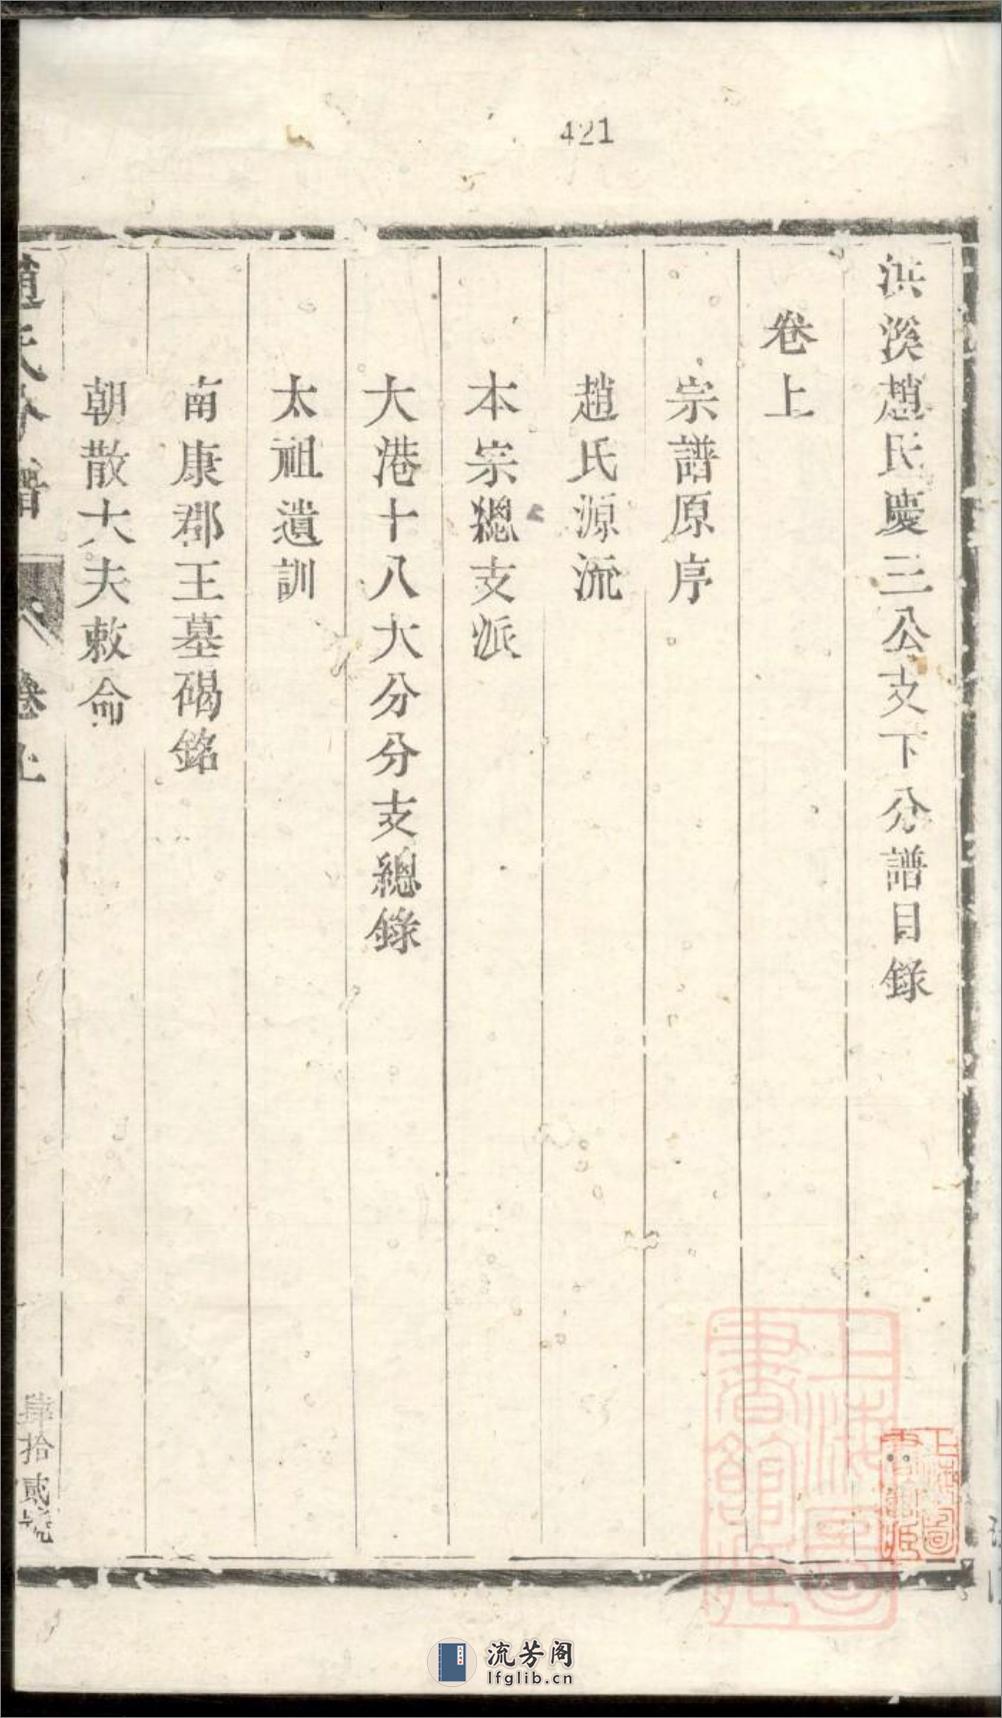 421
洪溪趙氏慶三公支下分譜目錄
卷上
宗譜原序
趙氏源流
本宗總支派
大港十八大分分支總錄
太祖遺訓
南康郡王墓碣銘
朝散大夫敕命
趙氏分譜
卷上
肆拾貳號
上海圖書館藏
上海圖書館藏
流芳阁
lfglib.cn